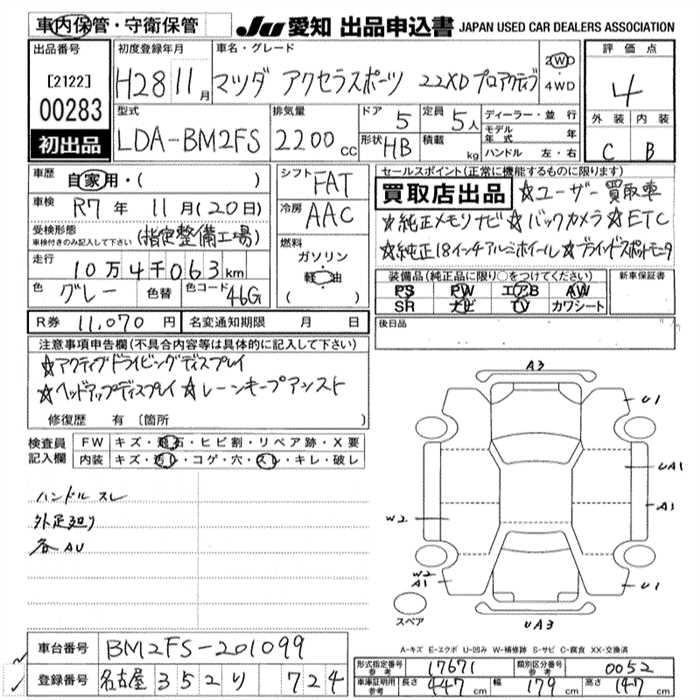 車内保管・守衛保管
JU 愛知 出品申込書 JAPAN USED CAR DEALERS ASSOCIATION
出品番号
[2122]
00283
初出品
初度登録年月
H28 11月
車名・グレード
マツダ アクセラスポーツ 22XD プロアクティブ
2WD
4WD
評価点
4
型式
LDA-BM2FS
排気量
2200cc
ドア 5
形状 HB
定員 5人
積載 kg
ディーラー・並行
モデル年式 年
ハンドル 左・右
外装 内装
C B
車歴 自家用・( )
車検 R7年 11月(20日)
受検形態
車検付きのみ記入して下さい (指定整備工場)
走行 10万4千063km
色 グレー 色替 色コード 46G
シフト FAT
冷房 AAC
燃料
ガソリン
軽油
( )
セールスポイント(正常に機能するものに限ります)
買取店出品 ☆ユーザー買取車
☆純正メモリナビ☆バックカメラ☆ETC
☆純正18インチアルミホイール☆ブラインドスポットモニタ
装備品(純正品に限り○をつけてください)
PS PW エアB AW
SR ナビ TV カワシート
新車保証書
後日品
R券 11,070円 名変通知期限 月 日
注意事項申告欄(不具合内容等は具体的に記入して下さい)
☆アクティブドライビングディスプレイ
☆ヘッドアップディスプレイ☆レーンキープアシスト
修復歴 有 〔箇所 〕
検査員記入欄
FW キズ・飛石・ヒビ割・リペア跡・X要
内装 キズ・汚レ・コゲ・穴・スレ・キレ・破レ
ハンドル スレ
外足廻り
各AU
A3
U1
UA1
A1
W2
W2
A1
U1
UA3
スペア
A-キズ E-エクボ U-凹み W-補修跡 S-サビ C-腐食 XX-交換済
車台番号 BM2FS-201099
登録番号 名古屋 352 り 724
形式指定番号 参考 17671 類別区分番号 参考 0052
車庫証明用 参考 長さ 447cm 幅 179cm 高さ 147cm